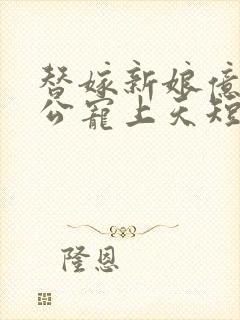 替嫁新娘億
公寵上天短
隆恩